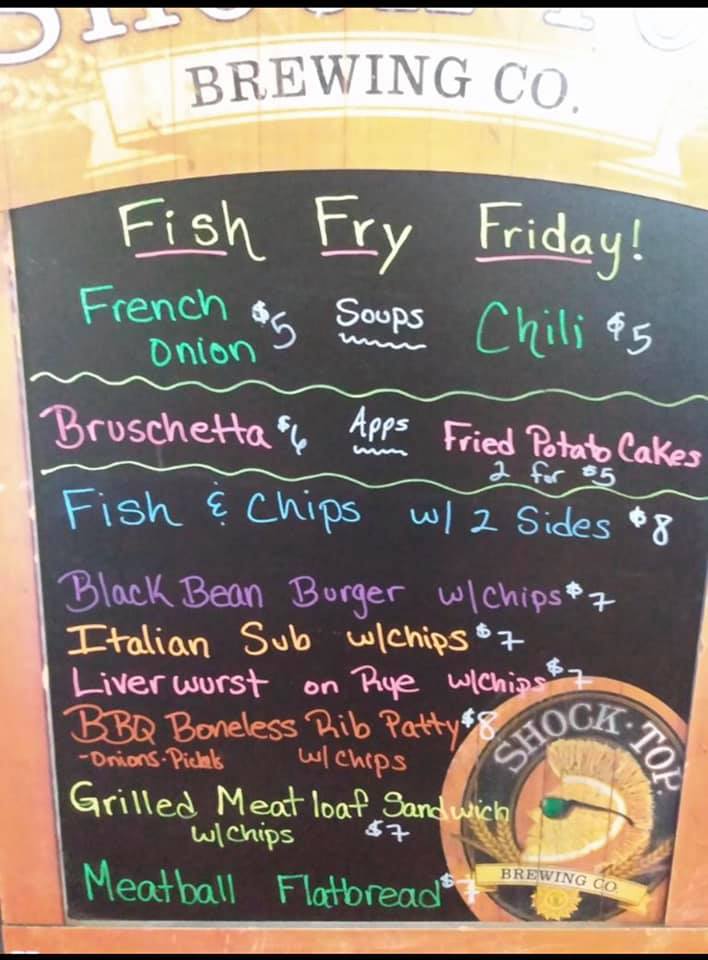 BREWING CO.
Fish Fry Friday!
French Onion $5 Soups Chili $5
Bruschetta $6 Apps Fried Potato Cakes
2 for $5
Fish & Chips w/ 2 Sides $8
Black Bean Burger w/chips $7
Italian Sub w/chips $7
Liverwurst on Rye w/chips $7
BBQ Boneless Rib Patty $8
-Onions-Pickels w/chips
Grilled Meatloaf Sandwich
w/chips $7
Meatball Flatbread $7
SHOCK·TOP
BREWING CO.